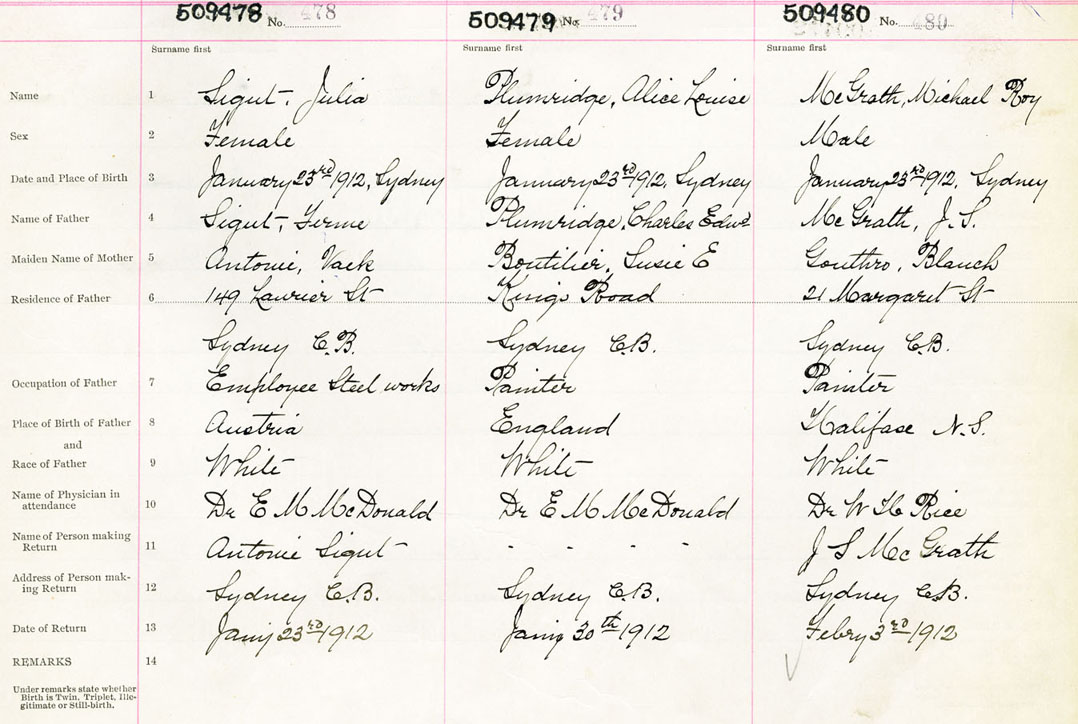 509478 No. 478 509479 No. 479 509480 No. 480
Surname first Surname first Surname first
Name 1 Sigut, Julia Plumridge, Alice Louise McGrath, Michael Roy
Sex 2 Female Female Male
Date and Place of Birth 3 January 23rd 1912, Sydney January 23rd 1912, Sydney January 23rd 1912, Sydney
Name of Father 4 Sigut, Ferme Plumridge, Charles Edwd McGrath, J. S.
Maiden Name of Mother 5 Antonie, Vack Boutilier, Susie E Gouthro, Blanch
Residence of Father 6 149 Laurier St Kings Road 21 Margaret St
Sydney C.B. Sydney C.B. Sydney C.B.
Occupation of Father 7 Employee Steel works Painter Painter
Place of Birth of Father 8 Austria England Halifax N.S.
and
Race of Father 9 White White White
Name of Physician in
attendance 10 Dr E M McDonald Dr E M McDonald Dr W H Rice
Name of Person making
Return 11 Antonie Sigut - - - - J S McGrath
Address of Person mak-
ing Return 12 Sydney C.B. Sydney C.B. Sydney C.B.
Date of Return 13 Jany 23rd 1912 Jany 30th 1912 Febry 3rd 1912
REMARKS 14
Under remarks state whether
Birth is Twin, Triplet, Ille-
gitimate or Still-birth.